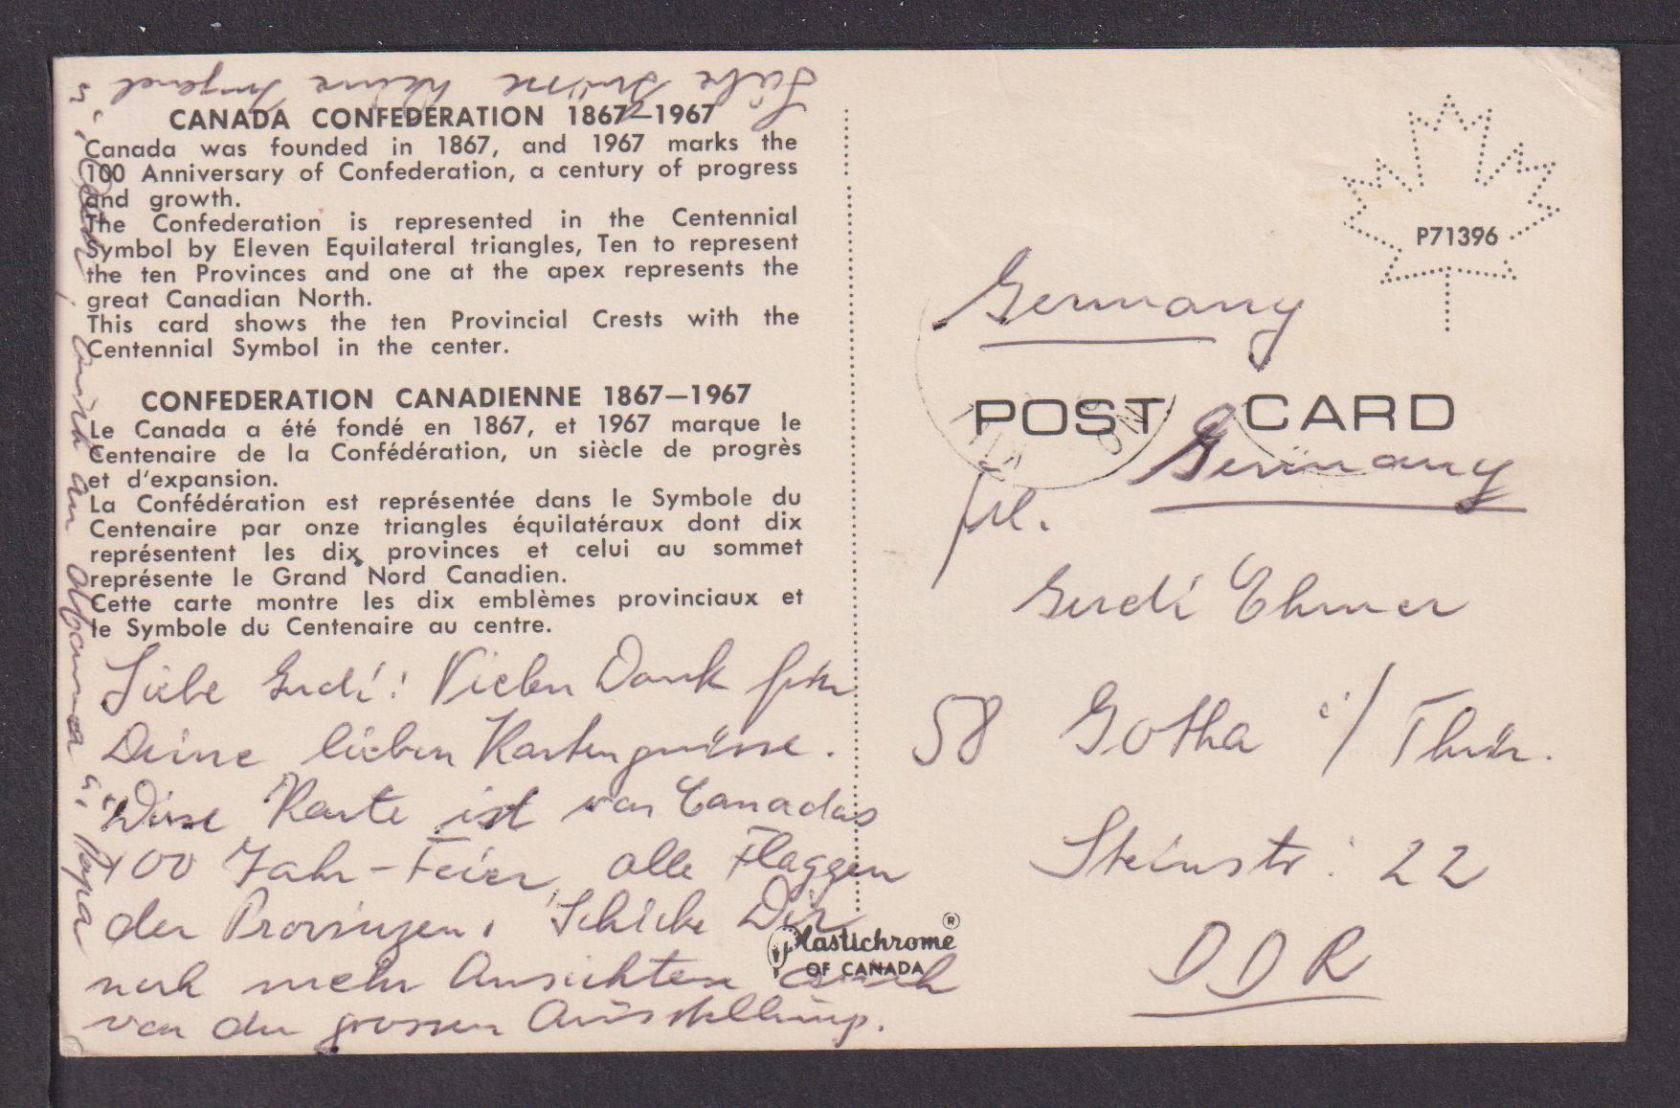 CANADA CONFEDERATION 1867–1967
Canada was founded in 1867, and 1967 marks the
100 Anniversary of Confederation, a century of progress
and growth.
The Confederation is represented in the Centennial
Symbol by Eleven Equilateral triangles, Ten to represent
the ten Provinces and one at the apex represents the
great Canadian North.
This card shows the ten Provincial Crests with the
Centennial Symbol in the center.
CONFEDERATION CANADIENNE 1867–1967
Le Canada a été fondé en 1867, et 1967 marque le
Centenaire de la Confédération, un siècle de progrès
et d'expansion.
La Confédération est représentée dans le Symbole du
Centenaire par onze triangles équilatéraux dont dix
représentent les dix provinces et celui au sommet
représente le Grand Nord Canadien.
Cette carte montre les dix emblèmes provinciaux et
le Symbole du Centenaire au centre.
Liebe Gerdi! Vielen Dank für
Deine lieben Kartengrüsse.
Diese Karte ist von Canadas
100 Jahr-Feier, alle Flaggen
der Provinzen. Schicke Dir
noch mehr Ansichten auch
von der grossen Ausstellung.
Liebe Grüsse Deine Irmgard
u. auch an Obama u. Papa
Plastichrome ®
OF CANADA
P71396
Germany
POST CARD
ON
Germany
Frl.
Gerdi Ehmer
58 Gotha i/Thür.
Steinstr. 22
DDR